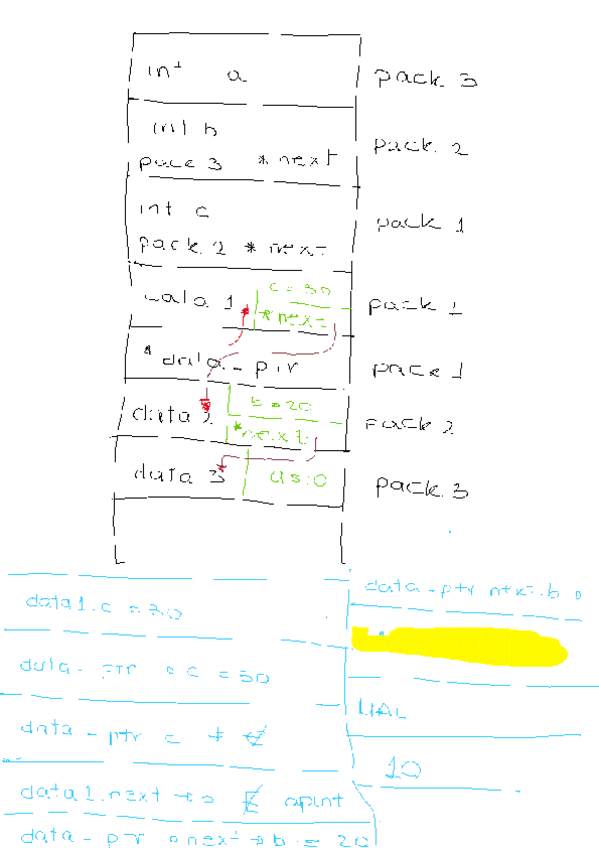 int a
pack 3
int b
pace 3 * next
pack 2
int c
pack 2 * next
pack 1
data 1
c = 30
* next
pack 1
* data - ptr
pack 1
data 2
b = 20
* next
pack 2
data 3
pack 3
data1.c = 30
data - ptr c = 30
data - ptr =
data1.next
data - ptr next → b = 20
data - ptr next.b
10